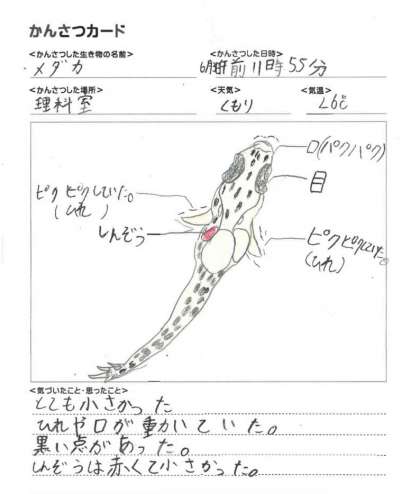 かんさつカード
<かんさつした生き物の名前>
メダカ
<かんさつした日時>
午前11時55分
<かんさつした場所>
理科室
<天気>
くもり
<気温>
26℃
口(パクパク)
目
ピクピクしていた。
(ひれ)
しんぞう
ピクピクしていた。
(ひれ)
<気づいたこと・思ったこと>
とても小さかった
ひれや口が動いていた。
黒い点があった。
しんぞうは赤くて小さかった。